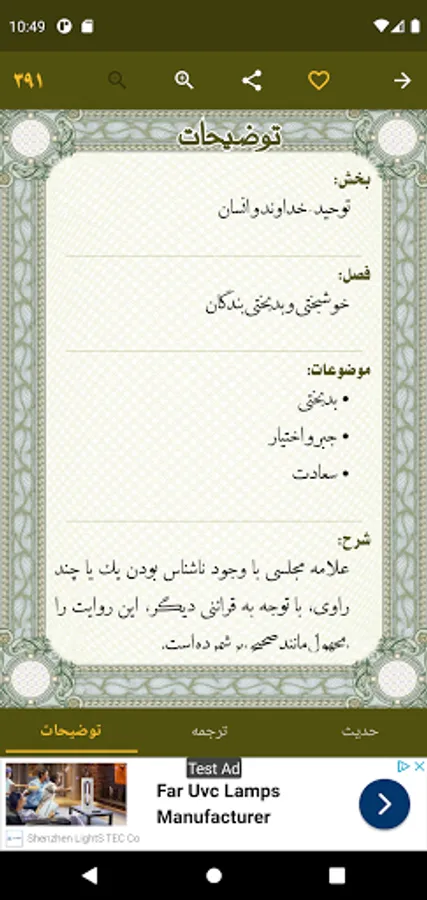 10:49
۳۹۱
توضیحات
بخش:
توحید-خداوند و انسان
فصل:
خوشبختی و بدبختی بندگان
موضوعات:
• بدبختی
• جبر و اختیار
• سعادت
شرح:
علامه مجلسی با وجود ناشناس بودن یك یا چند
راوی، با توجه به قرائنی دیگر، این روایت را
مجهول مانند صحیح بر شمرده است.
حدیث
ترجمه
توضیحات
Test Ad
Far Uvc Lamps
Manufacturer
Shenzhen LightS TEC Co